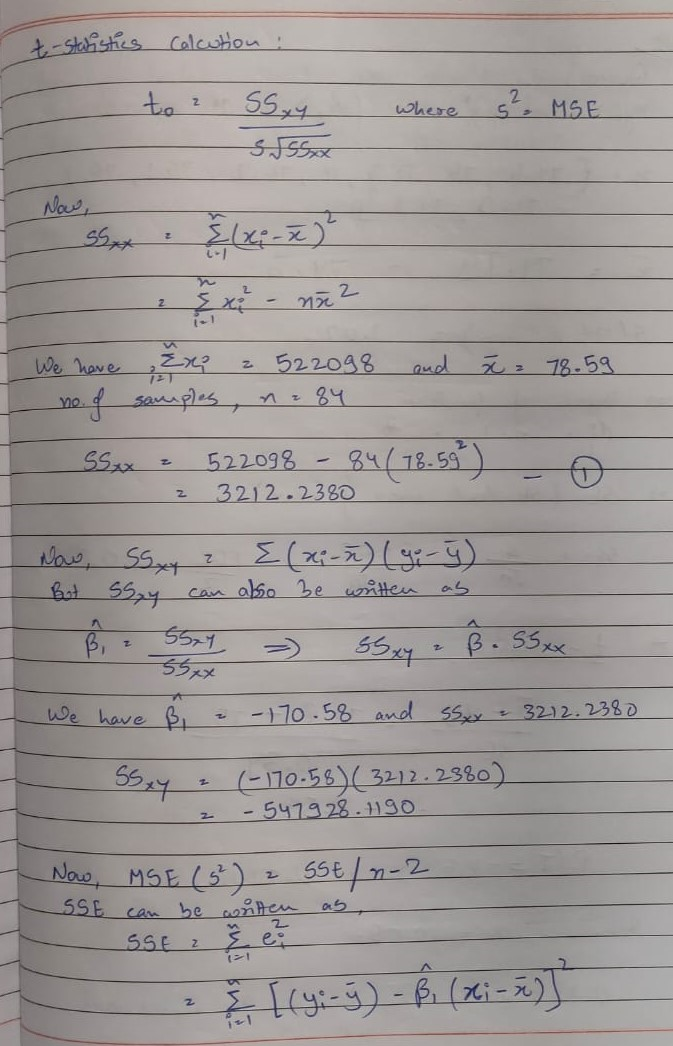 t-statistics Calcution :
t₀ = SSxy / s√SSxx where s² = MSE
Now,
SSxx = Σᵢ₌₁ⁿ (xᵢ - x̄)²
= Σᵢ₌₁ⁿ xᵢ² - nx̄²
We have, Σᵢ₌₁ⁿ xᵢ = 522098 and x̄ = 78.59
no. of samples, n = 84
SSxx = 522098 - 84(78.59²)
= 3212.2380 - ①
Now, SSxy = Σ(xᵢ - x̄)(yᵢ - ȳ)
But SSxy can also be written as
β̂₁ = SSxy / SSxx ⇒ SSxy = β̂ . SSxx
We have β̂₁ = -170.58 and SSxx = 3212.2380
SSxy = (-170.58)(3212.2380)
= -547928.1190
Now, MSE (s²) = SSE / n-2
SSE can be written as,
SSE = Σᵢ₌₁ⁿ eᵢ²
= Σᵢ₌₁ⁿ [(yᵢ - ȳ) - β̂₁ (xᵢ - x̄)]²